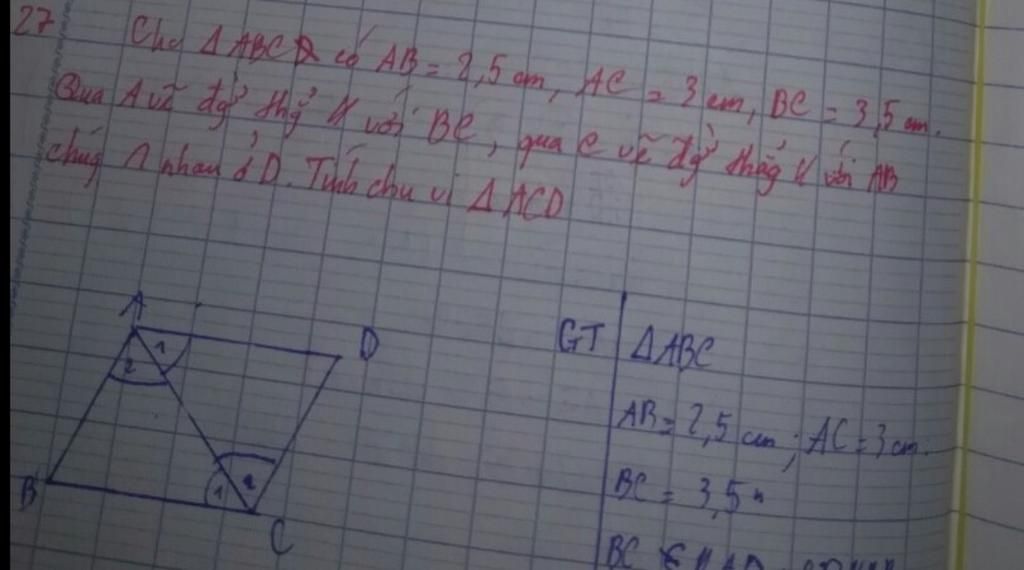 27 Cho Δ ABC có AB = 2,5 cm, AC = 3 cm, BC = 3,5 cm.
Qua A vẽ đg thg // với BC, qua C vẽ đg thẳg // với AB
chúg ∩ nhau ở D. Tính chu vi Δ ACD
A
D
1
2
B
1
2
C
GT
ΔABC
AB = 2,5 cm; AC = 3 cm.
BC = 3,5 "
BC // AD